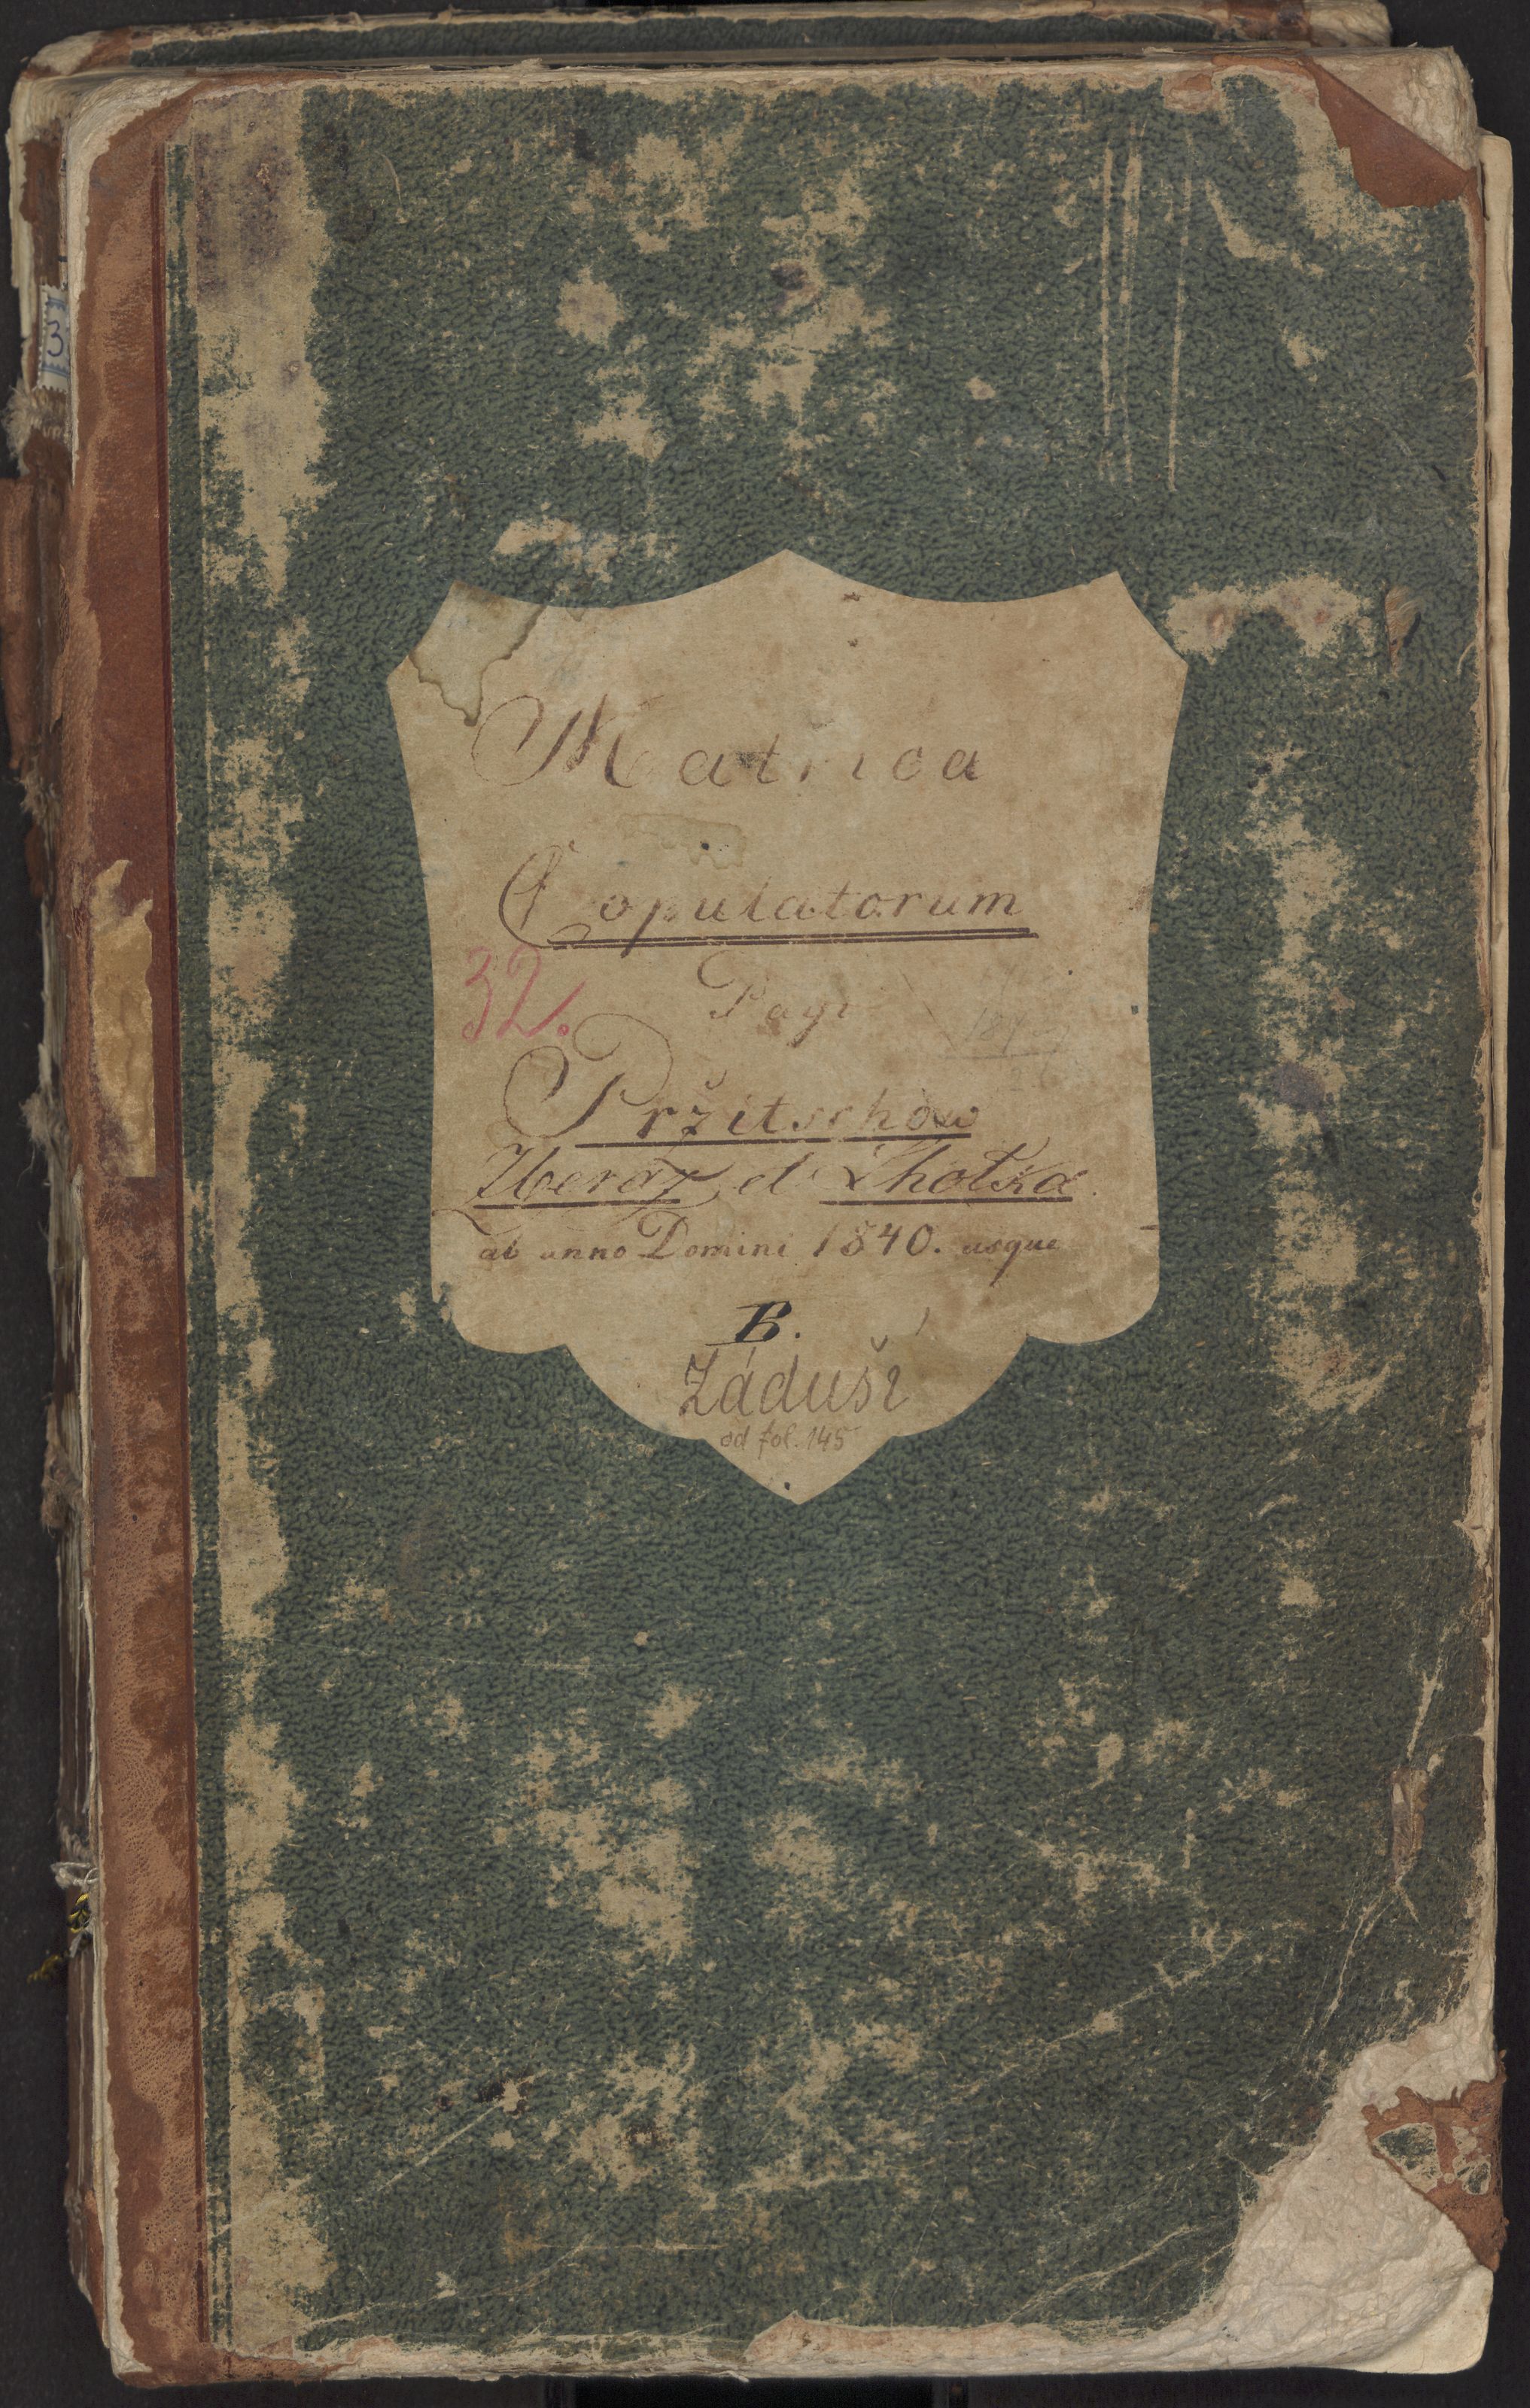 3
Matrica
Copulatorum
32.
Pagi
Pržitschow
Zberaz et Lhotka
ab anno Domini 1840. usque
B.
Záduší
od fol. 145